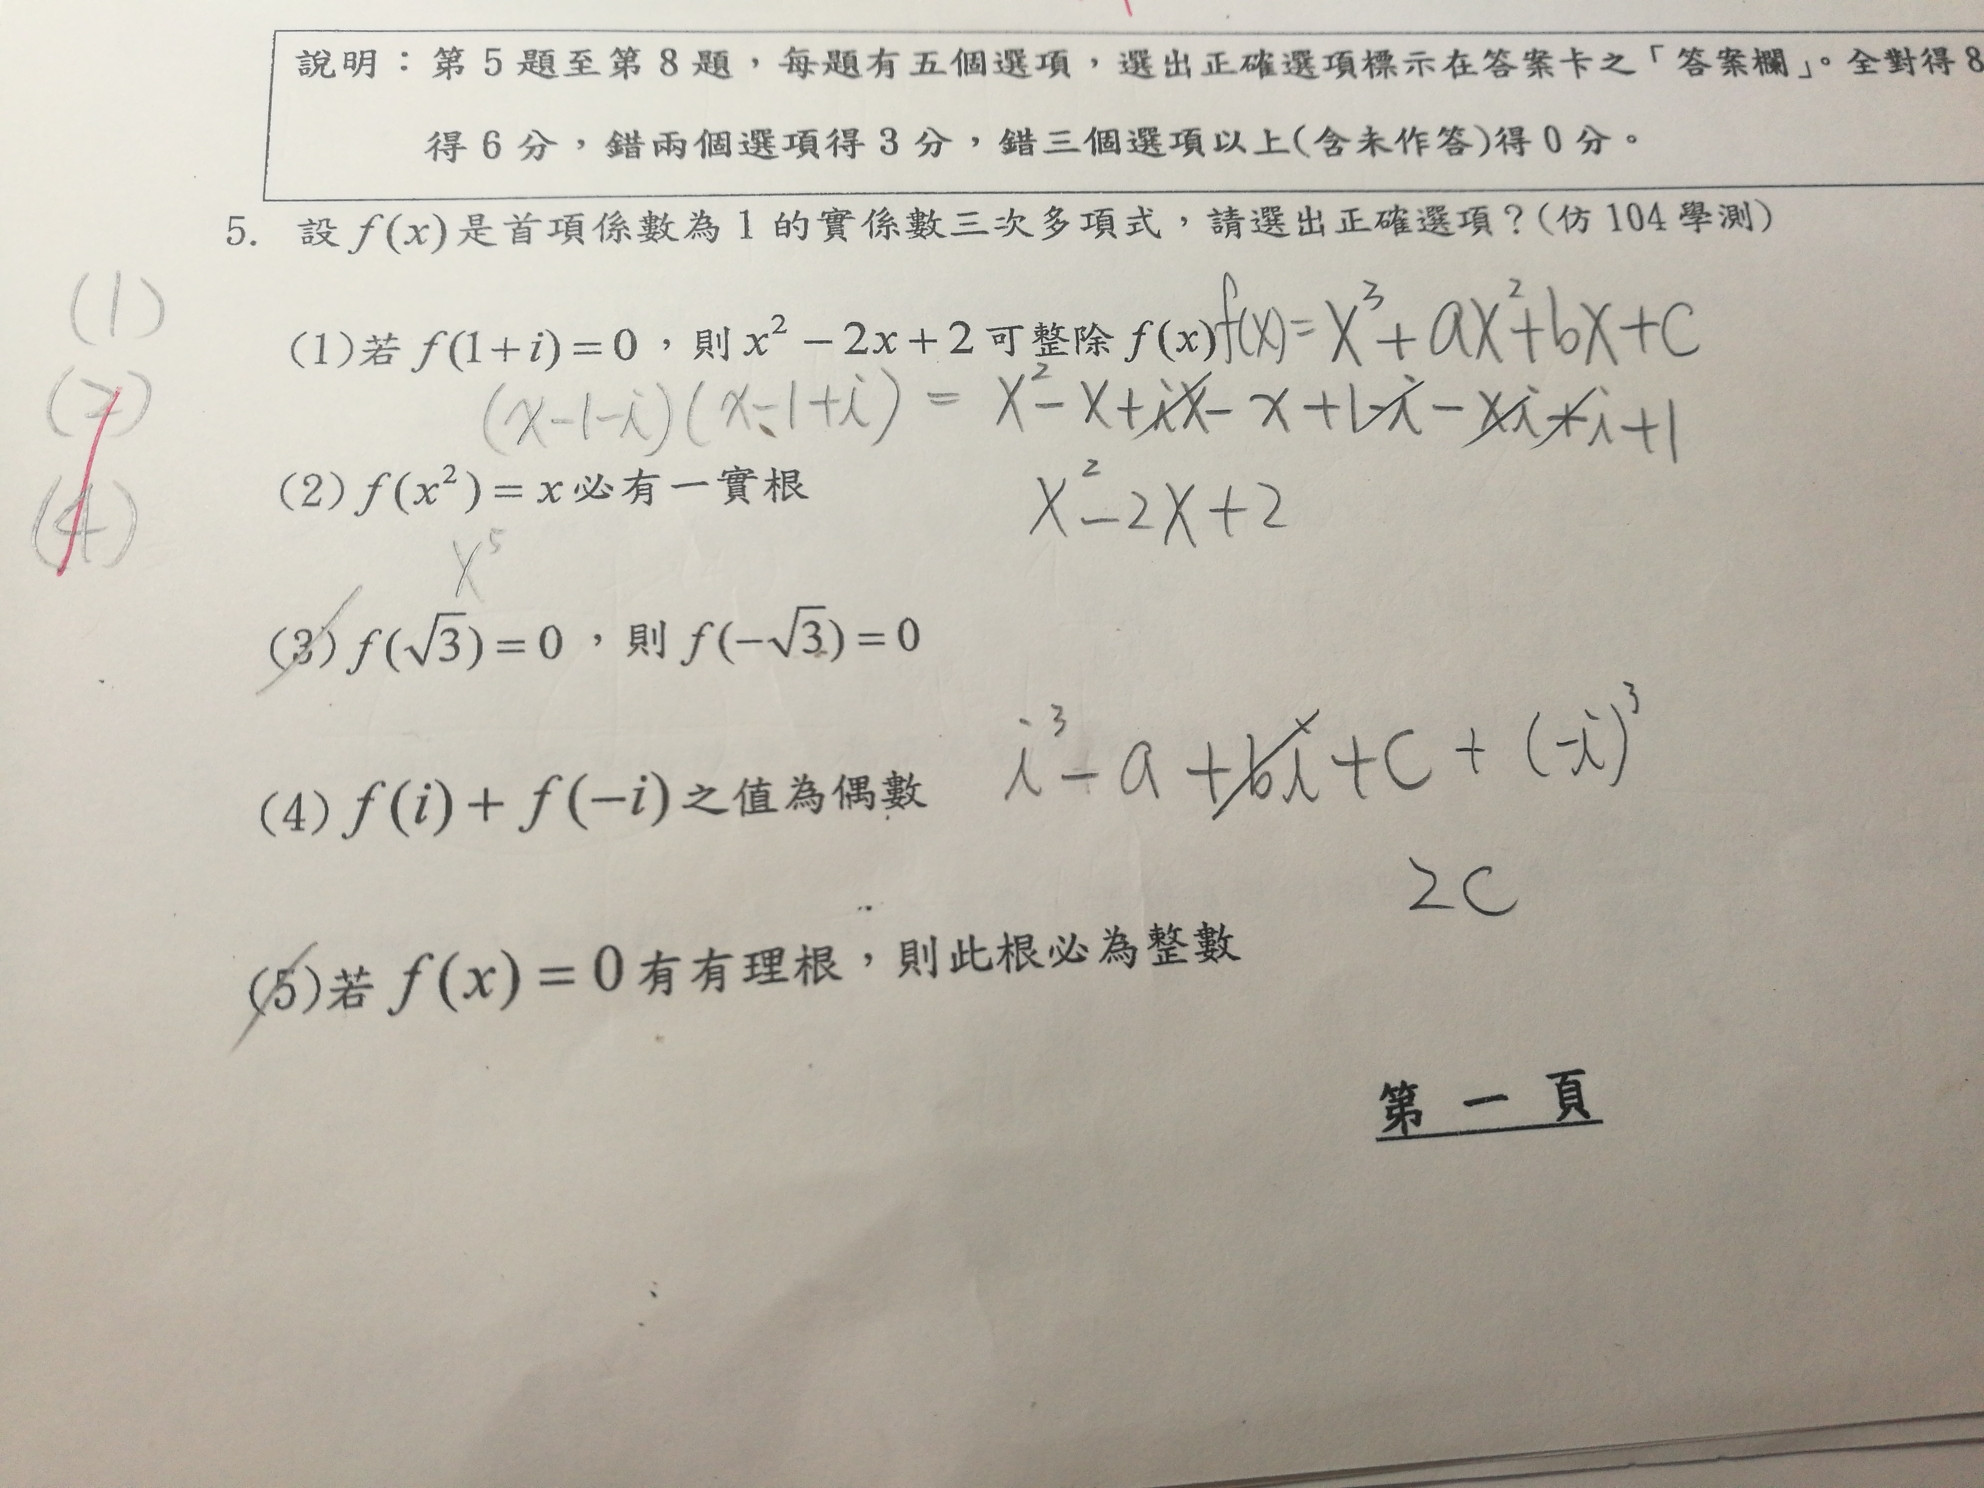 說明：第 5 題至第 8 題，每題有五個選項，選出正確選項標示在答案卡之「答案欄」。全對得 8
得 6 分，錯兩個選項得 3 分，錯三個選項以上(含未作答)得 0 分。
5. 設 f(x) 是首項係數為 1 的實係數三次多項式，請選出正確選項？(仿 104 學測)
(1)
(1)若 f(1+i)=0，則 x² − 2x + 2 可整除 f(x) f(x)= x³ + ax² + bx + c
(2)
(x-1-i)(x-1+i) = x² - x + ix - x + 1 - i - xi + i + 1
(2) f(x²) = x 必有一實根
x² - 2x + 2
(4)
x⁵
(3) f(√3) = 0，則 f(−√3) = 0
(4) f(i) + f(−i) 之值為偶數
i³ - a + bi + c + (-i)³
2c
(5)若 f(x) = 0 有有理根，則此根必為整數
第 一 頁